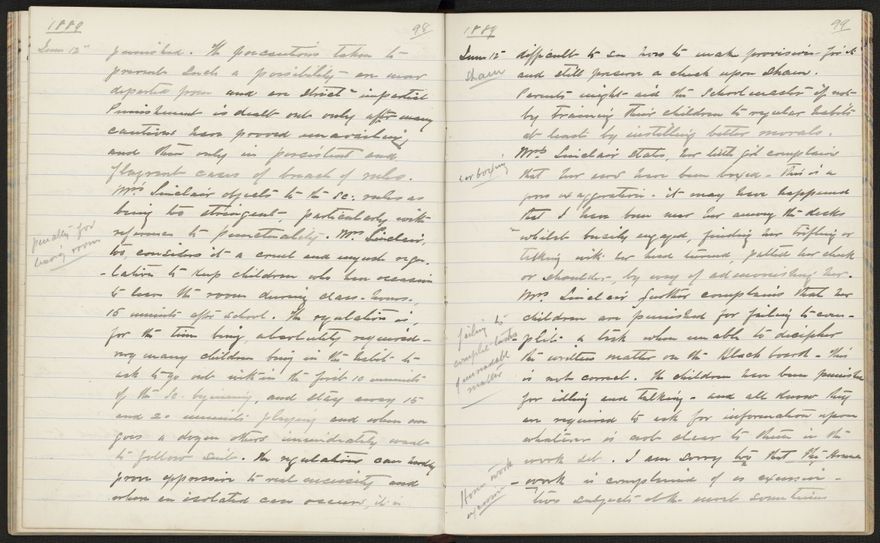 1889
98
June 12th
punished. The precautions taken to
prevent such a possibility are never
departed from and are strictly impartial
Punishment is dealt out only after many
cautions have proved unavailing
and then only in persistent and
flagrant cases of breach of rules.
Mrs Sinclair objects to the Sc. rules as
being too stringent - particularly with
reference to punctuality. Mrs Sinclair,
too, considers it a cruel and unjust regu-
penalty for
leaving room
-lation to keep children who have occasion
to leave the room during class-hours,
15 minutes after school. The regulation is,
for the time being, absolutely required -
very many children being in the habit to
ask to go out within the first 10 minutes
of the Sc. beginning, and stay away 15
and 20 minutes playing and when one
goes a dozen others immediately want
to follow suit. The regulations can hardly
prove oppression to real necessity and
when an isolated case occurs, it is
1889
99
June 12th
difficult to see how to make provision for it
sham
and still preserve a check upon sham.
Parents might aid the Schoolmaster if not
by training their children to regular habits
at least by instilling better morals.
Mrs Sinclair states, her little girl complains
ear boxing
that her ears have been boxed - This is a
gross exaggeration - it may have happened
that I have been near her among the desks
whilst busily engaged, finding her trifling or
talking with her head turned, patted her cheek
or shoulder, by way of admonishing her.
Mrs Sinclair further complains that her
children are punished for failing to com-
failing to
complete tasks
unreadable
matter
-plete a task when unable to decipher
the written matter on the Blackboard - This
is not correct. The children have been punished
for idling and talking - and all know they
are required to ask for information upon
whatever is not clear to them in the
work set. I am sorry too that the Home
Home work
excessive
- work is complained of as excessive -
two subjects at the most sometimes